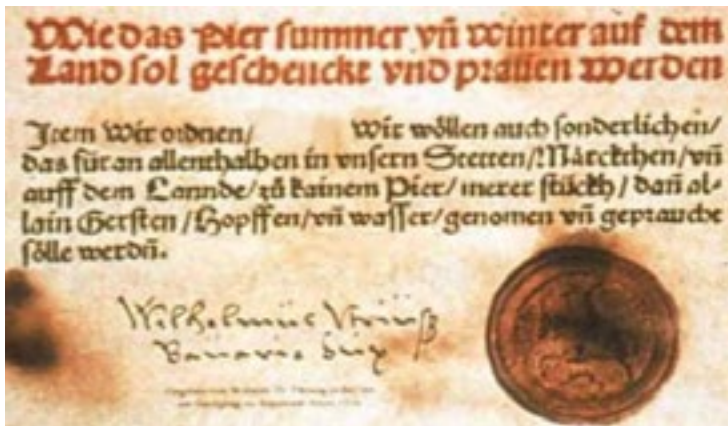 Wie das Pier summer vñ winter auf dem
Land sol geschenckt vnd prauen werden
Item Wir ordnen/ Wir wöllen auch sonderlichen/
das für an allenthalben in vnsern Stetten/Märckthen/vñ
auff dem Lannde/zů kainem Pier/merer stückh/dañ al-
lain Gersten/Hopffen/vñ wasser/genomen vñ gepraucht
sölle werdñ.
Wilhelmüs
Bavarie Dux